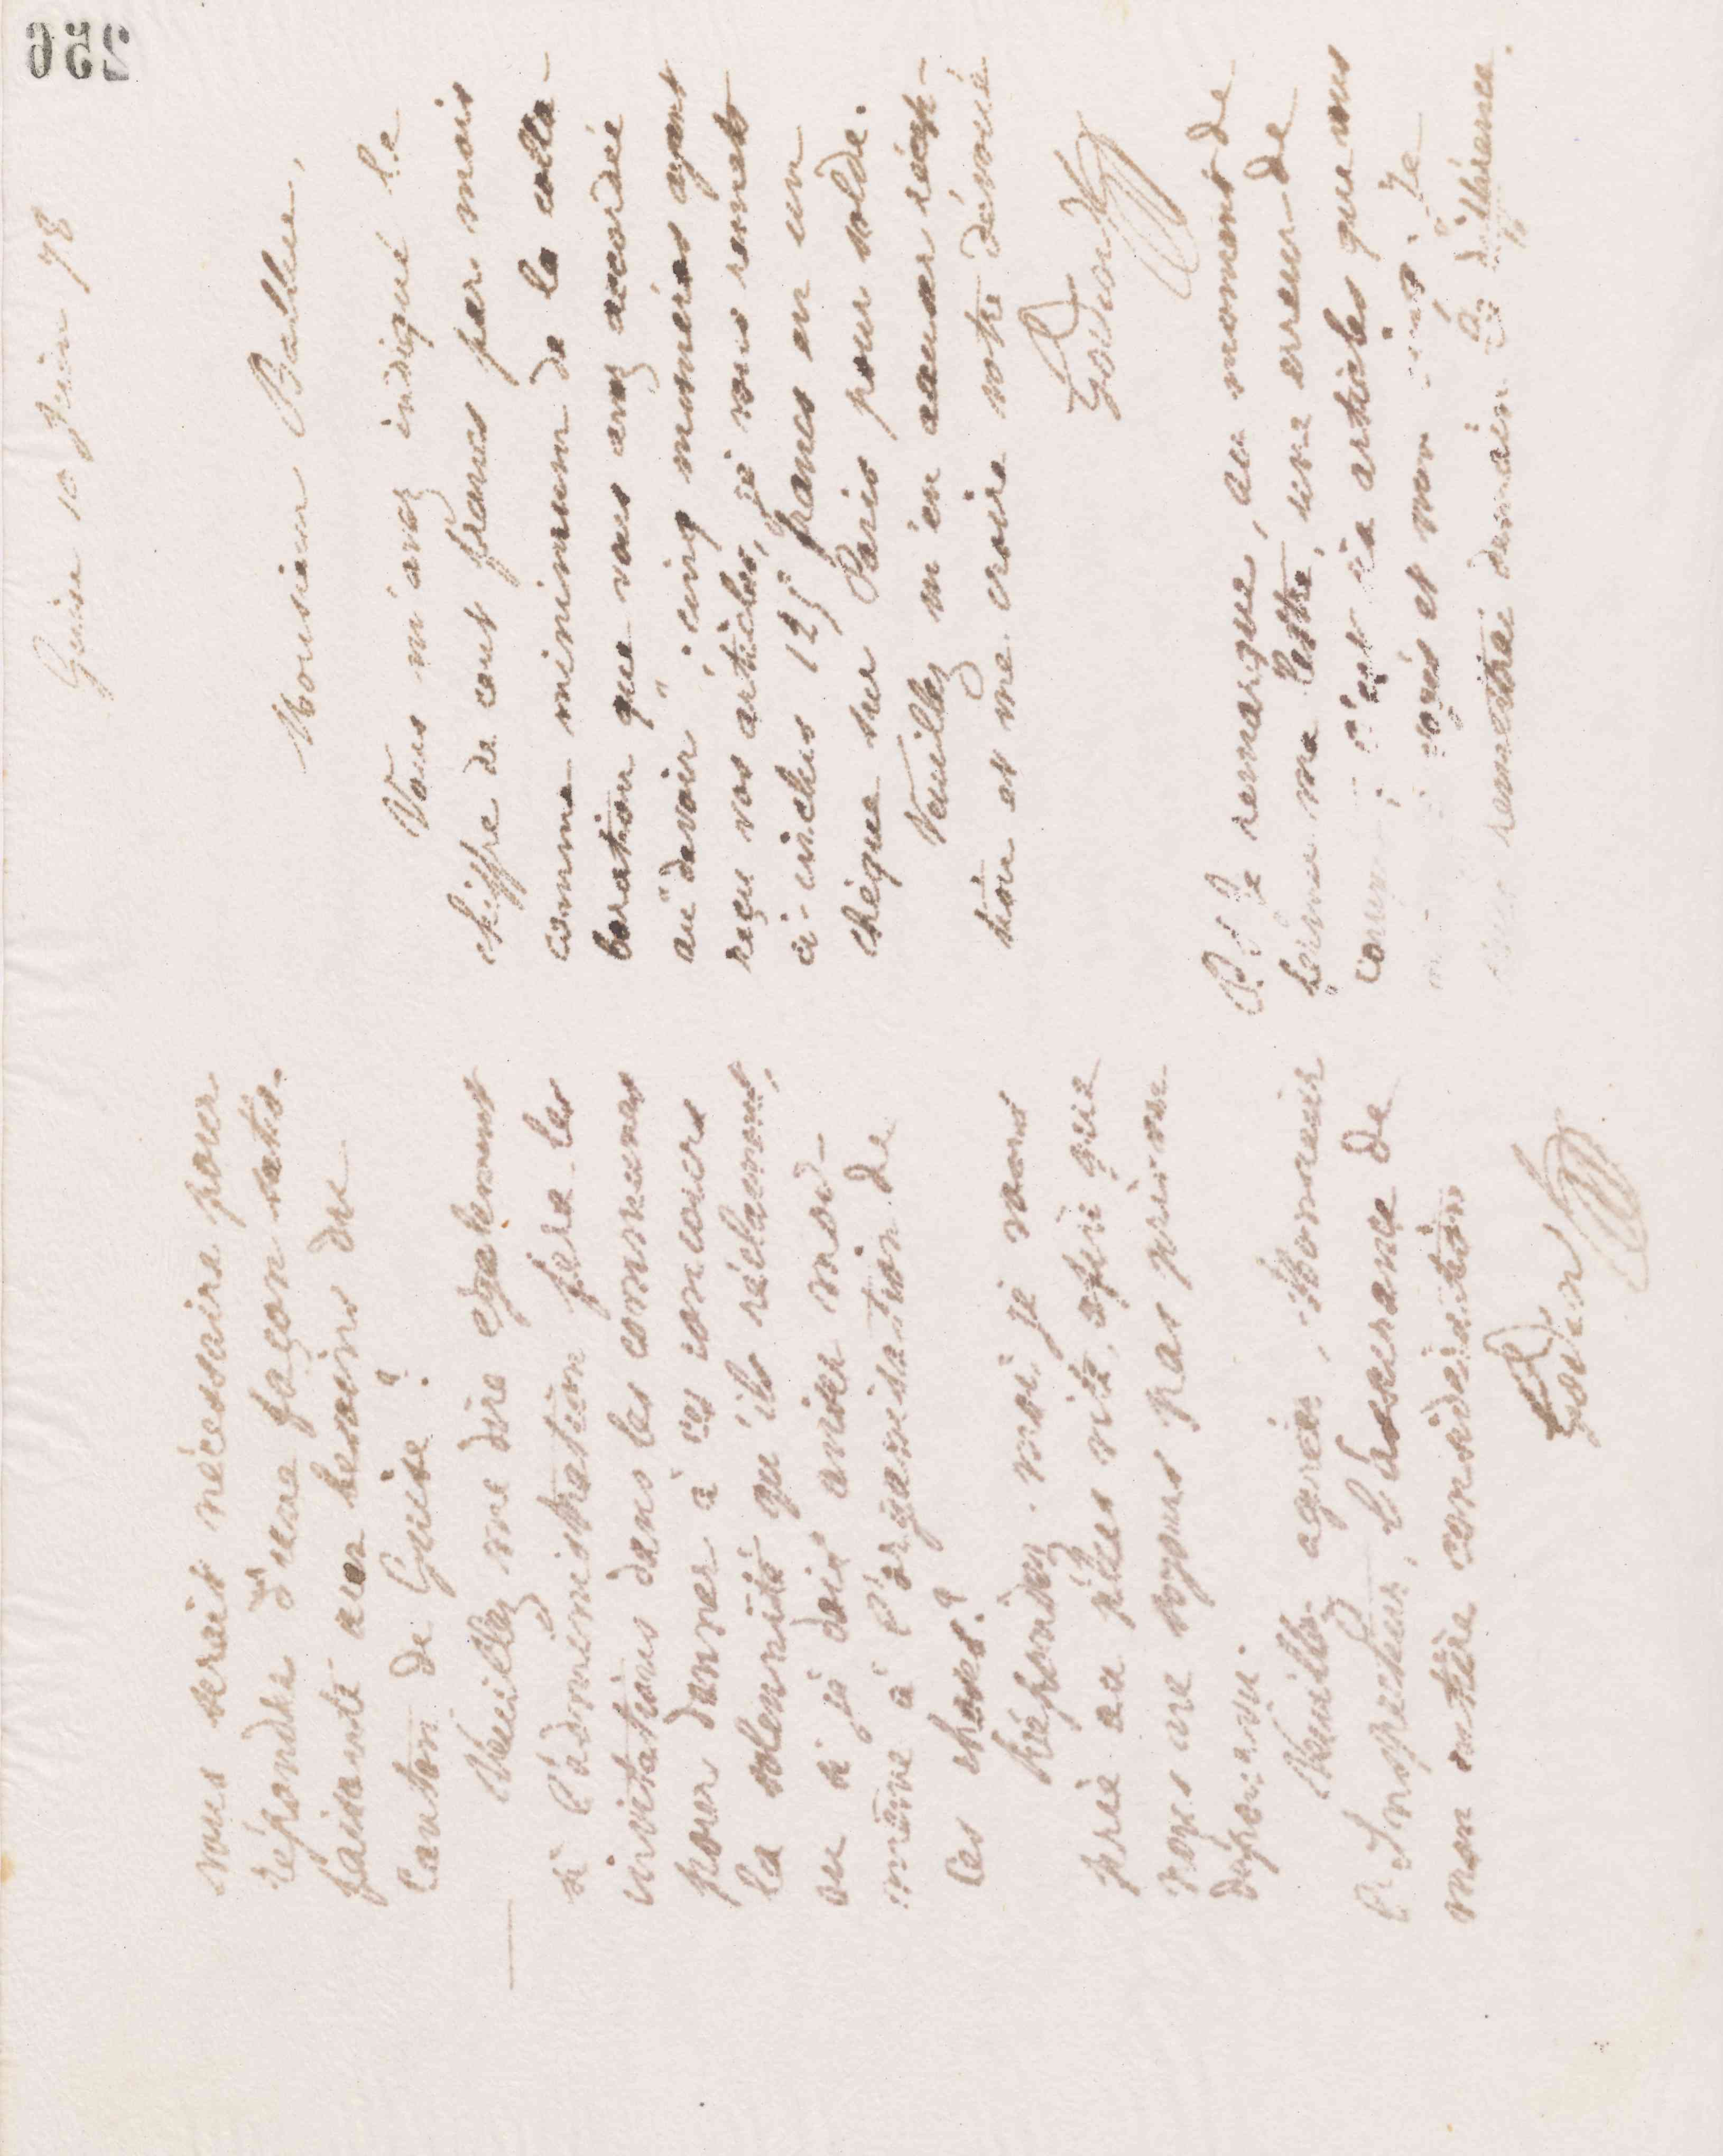 vous serait nécessaire pour
répondre d'une façon satis-
faisante aux besoins du
Canton de Guise ?
Veuillez me dire également
si l'administration fera les
invitations dans les communes
pour donner à ces concours
la solennité qu'ils réclament,
ou si je dois aviser moi-
même à l'organisation de
ces choses ?
Répondez-moi je vous
prie au plus vite, afin que
nous ne soyons pas pris au
dépourvu.
Veuillez agréer, Monsieur
l'Inspecteur, l'assurance de
mon entière considération
Godin
256
Guise 10 Juin 78
Monsieur
Vous m'avez indiqué le
chiffre de cent francs par mois
comme minimum de la colla-
boration que vous avez accordée
au "devoir"; cinq numéros ayant
reçu vos articles, je vous remets
ci-inclus 125 francs en un
chèque sur Paris pour solde.
Veuillez m'en accuser récep-
tion et me croire votre dévoué
Godin
P.S. Je remarque, au moment de
fermer ma lettre, une erreur de
articles que vous
et non Je
remettrai demain la différence.